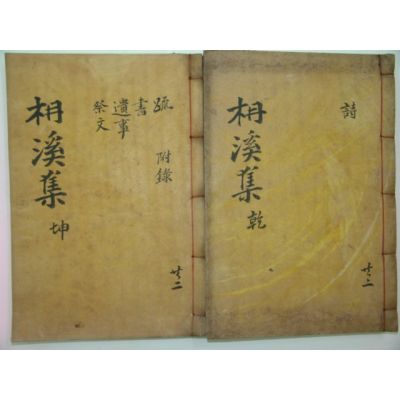 詩
共二
枏溪集 乾
疏
書
遺事
祭文
附錄
共二
枏溪集 坤